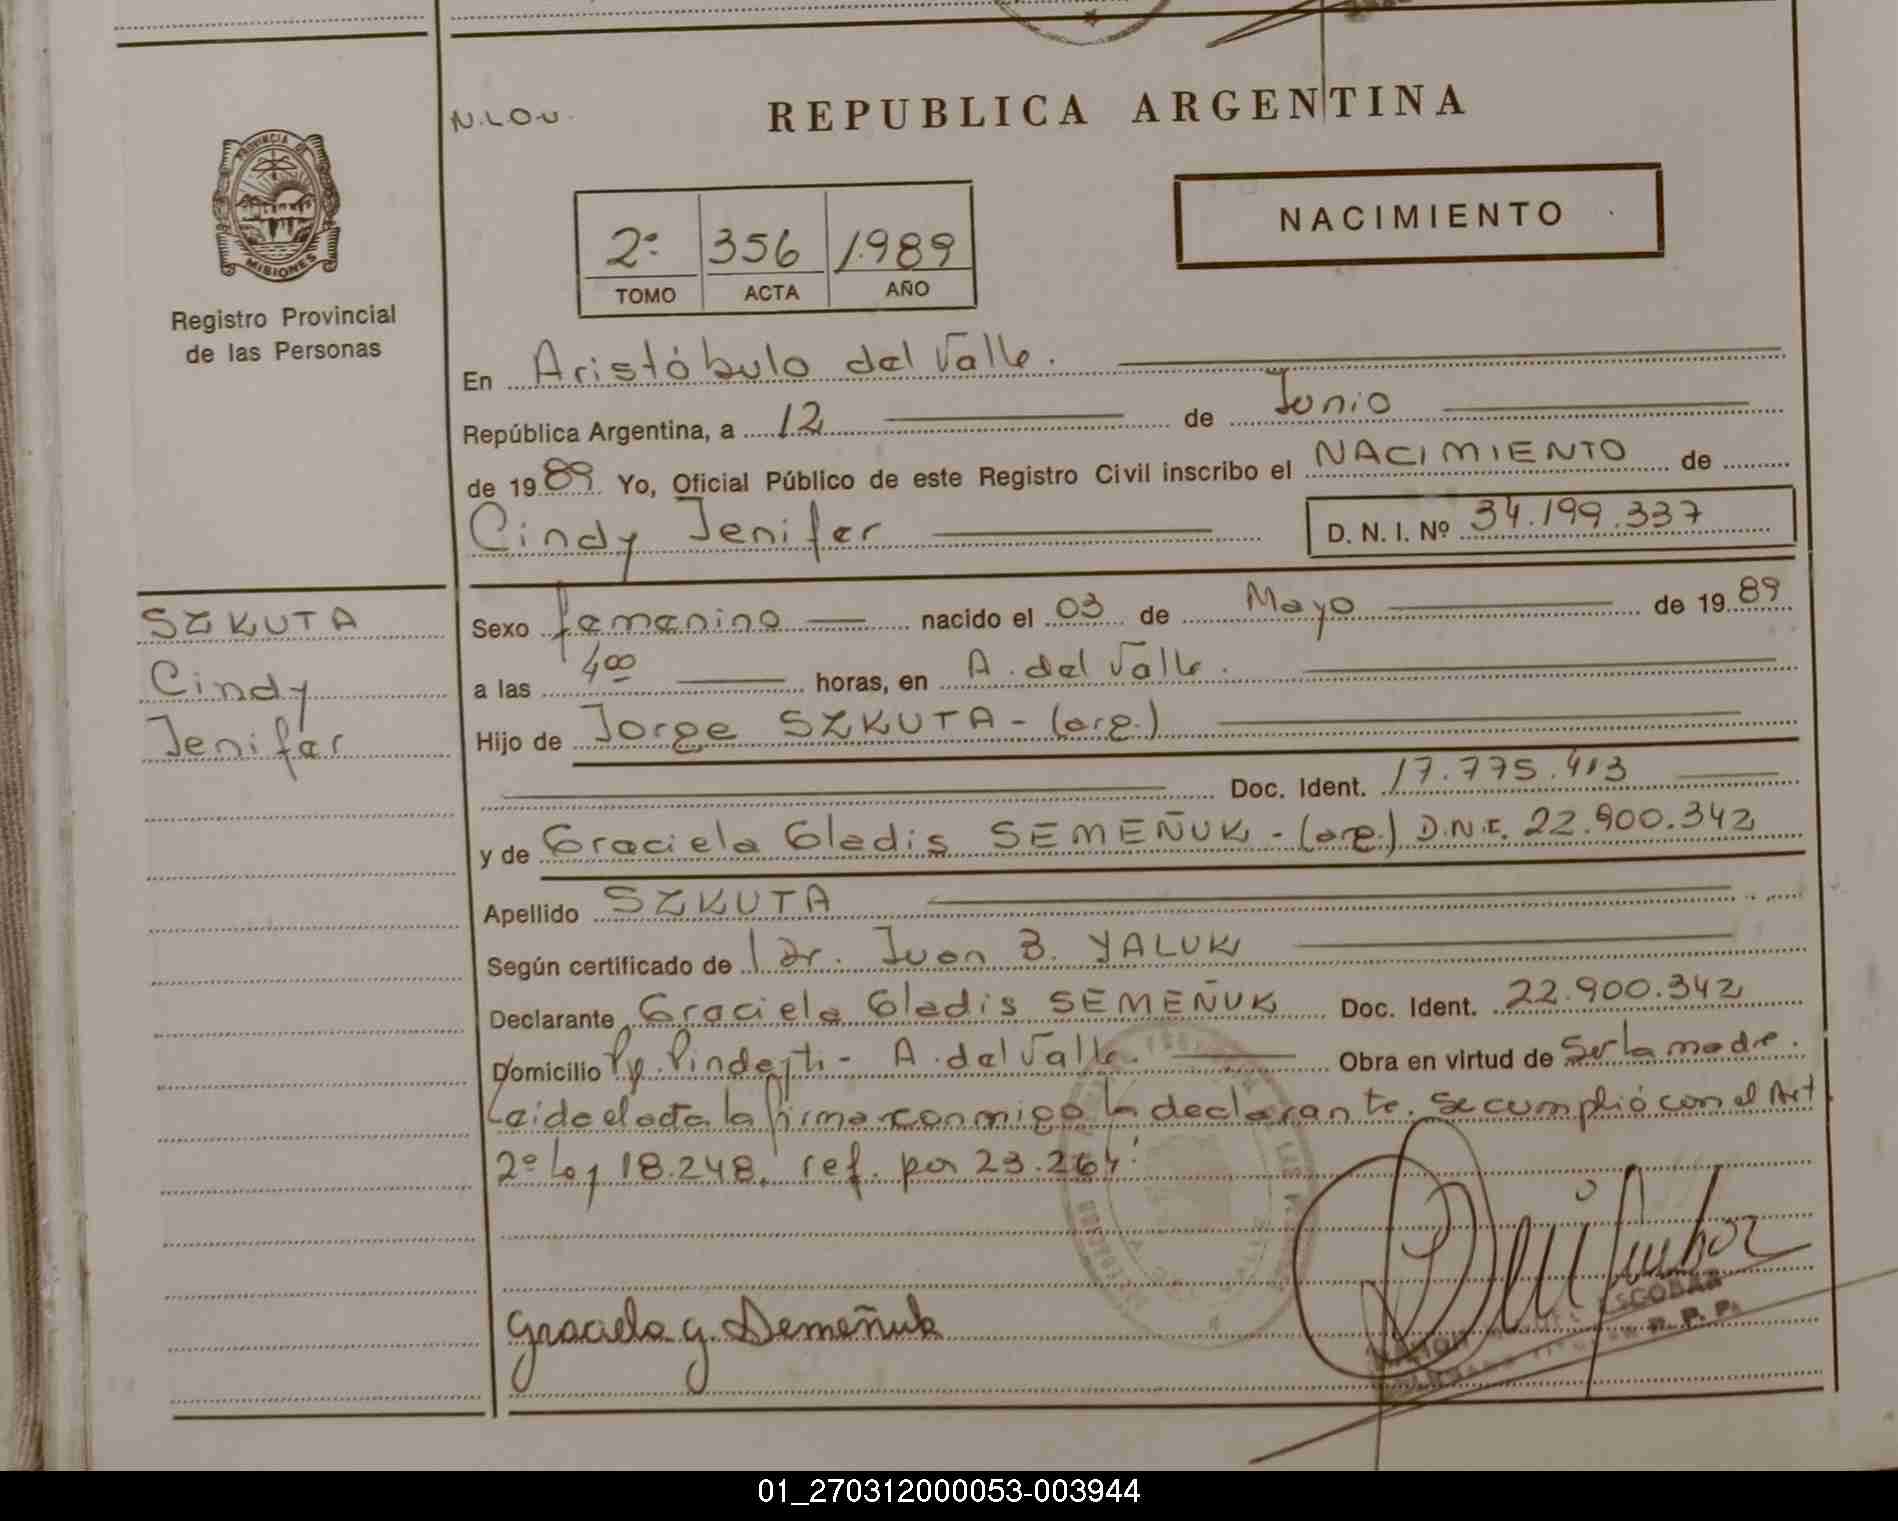 N.L.O.U.
REPUBLICA ARGENTINA
PROVINCIA DE
MISIONES
Registro Provincial
de las Personas
2º 356 1.989
TOMO ACTA AÑO
NACIMIENTO
En Aristóbulo del Valle.
República Argentina, a 12 de Junio
de 1989 Yo, Oficial Público de este Registro Civil inscribo el NACIMIENTO de
Cindy Jenifer D. N. I. Nº 34.199.337
SZKUTA
Cindy
Jenifer
Sexo femenino nacido el 03 de Mayo de 1989
a las 4 00 horas, en A. del Valle.
Hijo de Jorge SZKUTA - (arg.)
Doc. Ident. 17.775.413
y de Graciela Gladis SEMEÑUK - (arg.) D.N.I. 22.900.342
Apellido SZKUTA
Según certificado de Dr. Juan B. YALUK
Declarante Graciela Gladis SEMEÑUK Doc. Ident. 22.900.342
Domicilio Py. Pindayti - A. del Valle. Obra en virtud de Ser la madre.
Leida el acta la firma conmigo la declarante. Se cumplió con el Art
2º Ley 18.248, ref. por 23.264.
Graciela G. Semeñuk
ESCOBAR
R. P. P.
01_270312000053-003944